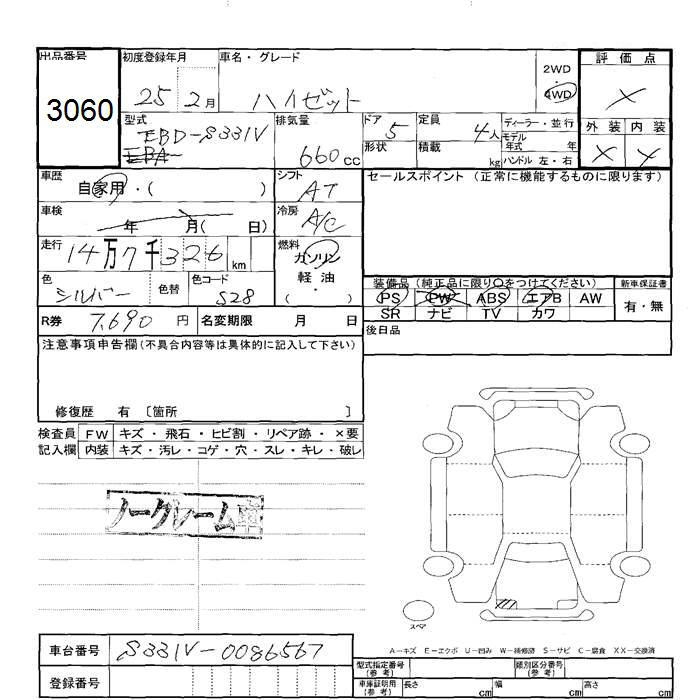 出品番号 初度登録年月 車名・グレード 評価点
3060 25 2月 ハイゼット 2WD ・ 4WD ×
型式 排気量 ドア 定員 ディーラー・並行 外装 内装
EBD-S331V 660cc 5 4人 モデル年式 年 × ×
EBA-
形状 積載 kg ハンドル 左・右
車歴 自家用・( ) シフト AT セールスポイント (正常に機能するものに限ります)
車検 年 月( 日) 冷房 A/C
走行 14万7千326km 燃料 ガソリン
軽油・( )
色 シルバー 色替 色コード S28
装備品 (純正品に限り○をつけてください) 新車保証書
PS PW ABS エアB AW 有・無
SR ナビ TV カワ
R券 7,690円 名変期限 月 日 後日品
注意事項申告欄(不具合内容等は具体的に記入して下さい)
修復歴 有 〔箇所 〕
検査員 FW キズ・飛石・ヒビ割・リペア跡・×要
記入欄 内装 キズ・汚レ・コゲ・穴・スレ・キレ・破レ
ノークレーム車
スペア
A-キズ E-エクボ U-凹み W-補修跡 S-サビ C-腐食 XX-交換済
車台番号 S331V-0086567
型式指定番号(参考) 類別区分番号(参考)
登録番号 車庫証明用(参考) 長さ cm 幅 cm 高さ cm